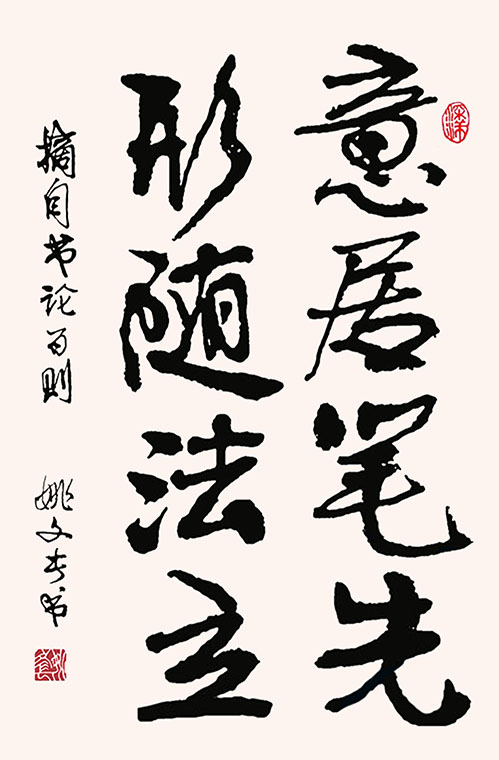 意居笔先
形随法立
摘自书论百则
姚文书